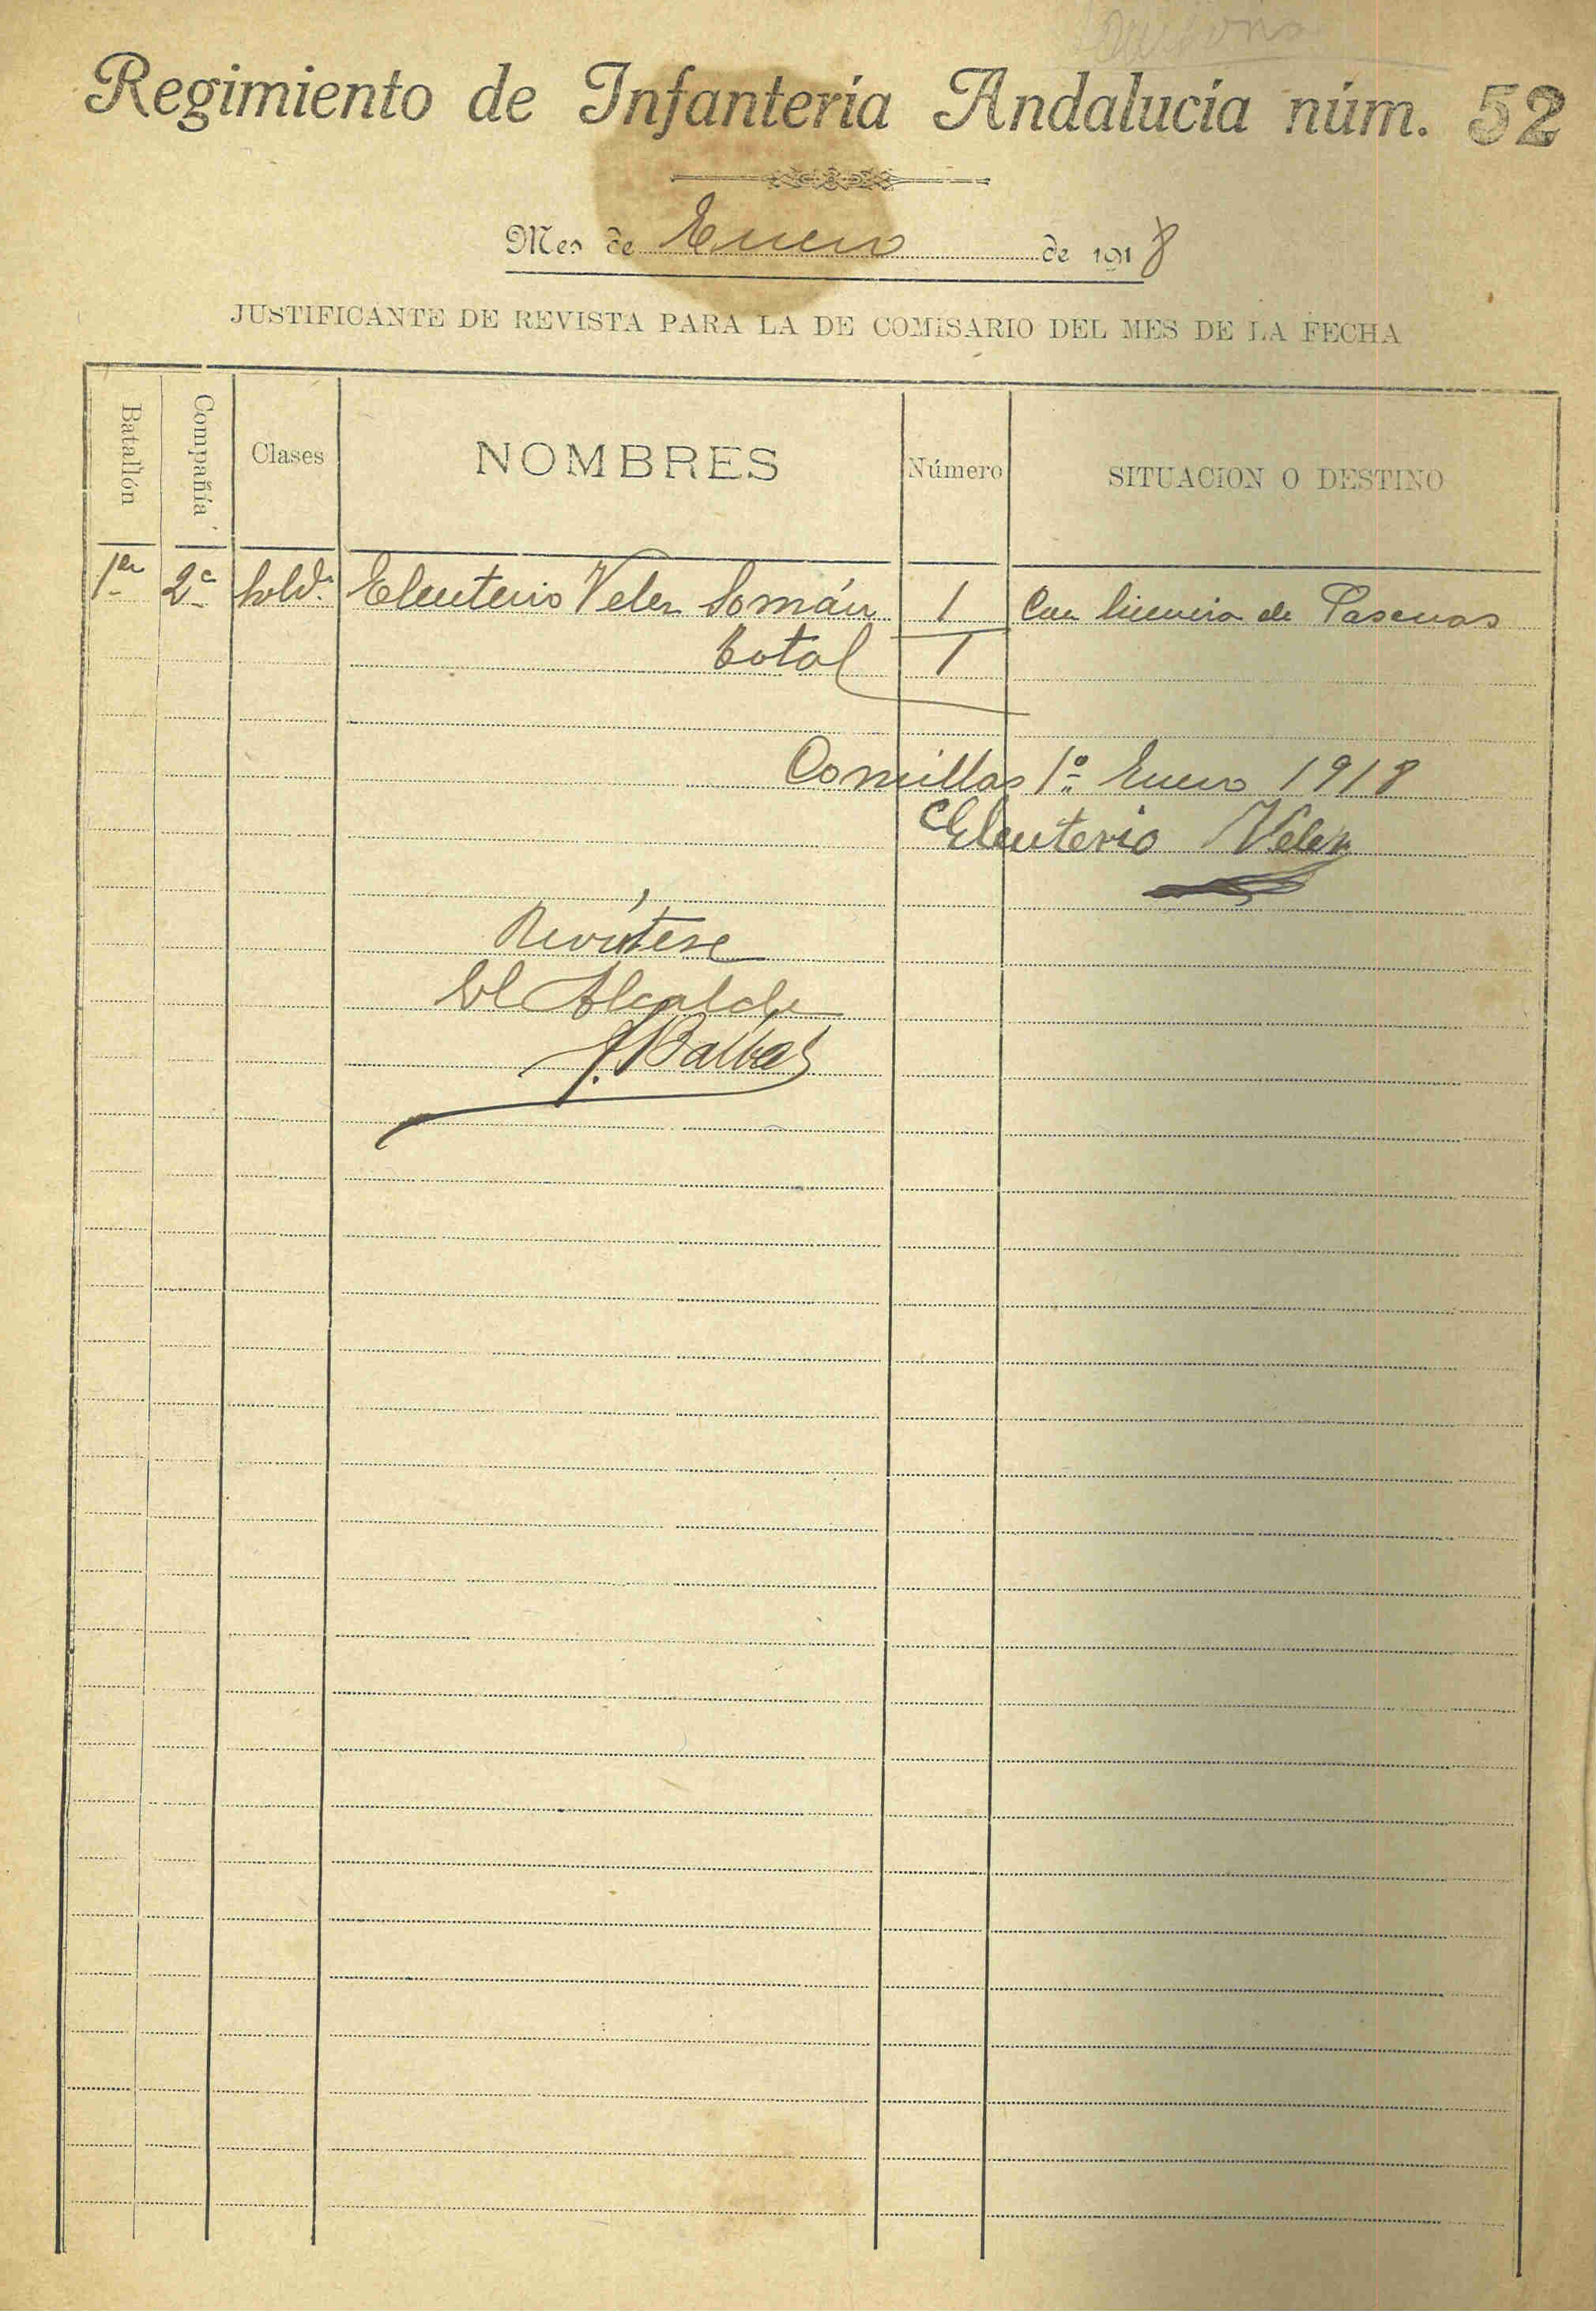 Regimiento de Infantería Andalucía núm. 52
Mes de Enero de 1918
JUSTIFICANTE DE REVISTA PARA LA DE COMISARIO DEL MES DE LA FECHA
Batallón Compañía Clases NOMBRES Número SITUACION O DESTINO
1er 2ª Sold.º Eleuterio Velez Román 1 Con licencia de Pascuas
Total 1
Comillas 1º Enero 1918
Eleuterio Velez
Revístese
El Alcalde